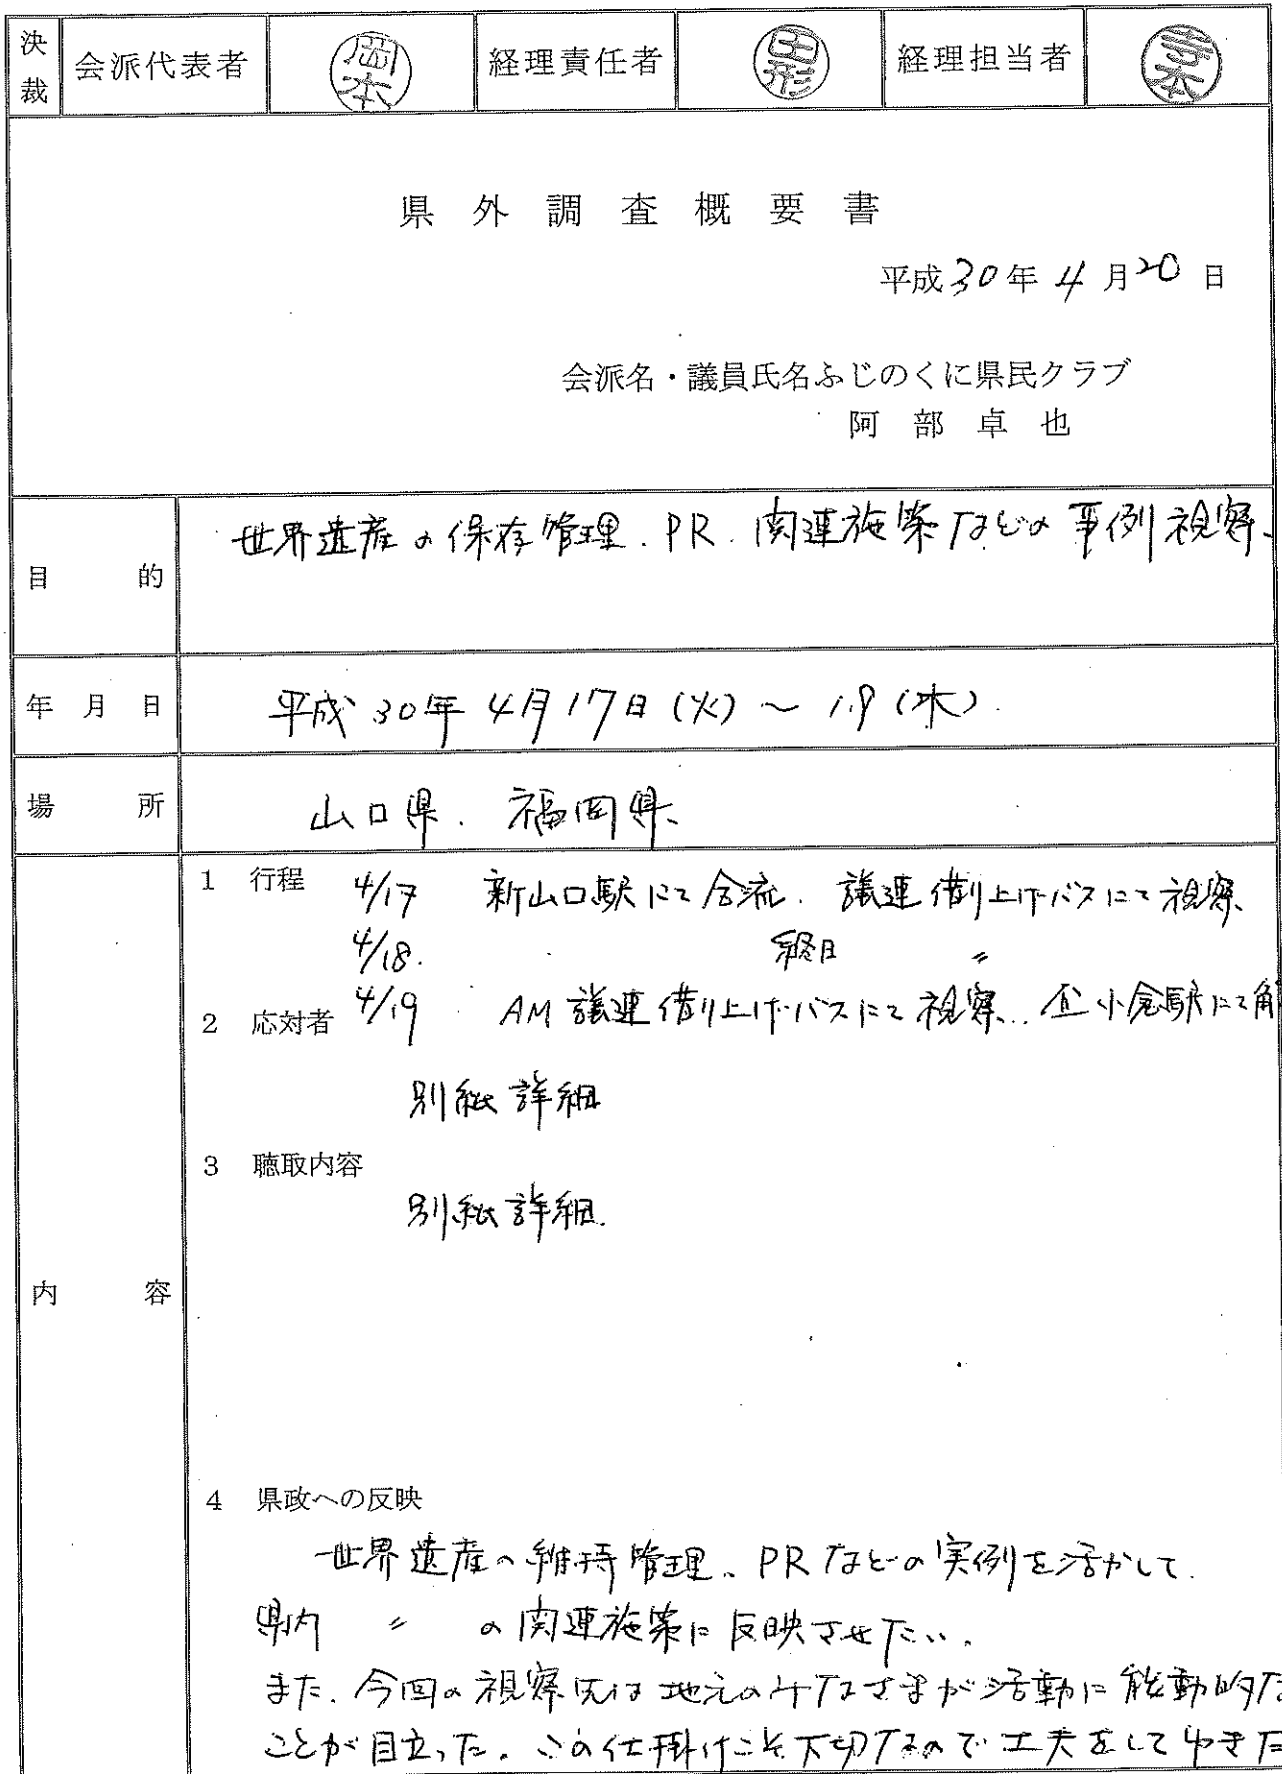 決裁 会派代表者 岡本 経理責任者 経理担当者
県外調査概要書
平成30年4月20日
会派名・議員氏名ふじのくに県民クラブ
阿部卓也
目的 世界遺産の保存管理、PR、関連施策などの事例視察、
年月日 平成30年4月17日(火)~19(木)
場所 山口県、福岡県、
内容
1 行程 4/17 新山口駅にて合流、議連借り上げバスにて視察、
4/18. 終日 〃
4/19 AM 議連借り上げバスにて視察、 小倉駅にて
2 応対者
別紙詳細
3 聴取内容
別紙詳細.
4 県政への反映
世界遺産の維持管理、PRなどの実例を活かして、
県内 〃 の関連施策に反映させたい。
また、今回の視察先は地元のみなさまが活動に能動的な
ことが目立った。この仕掛けこそ大切なので工夫をしてゆきた